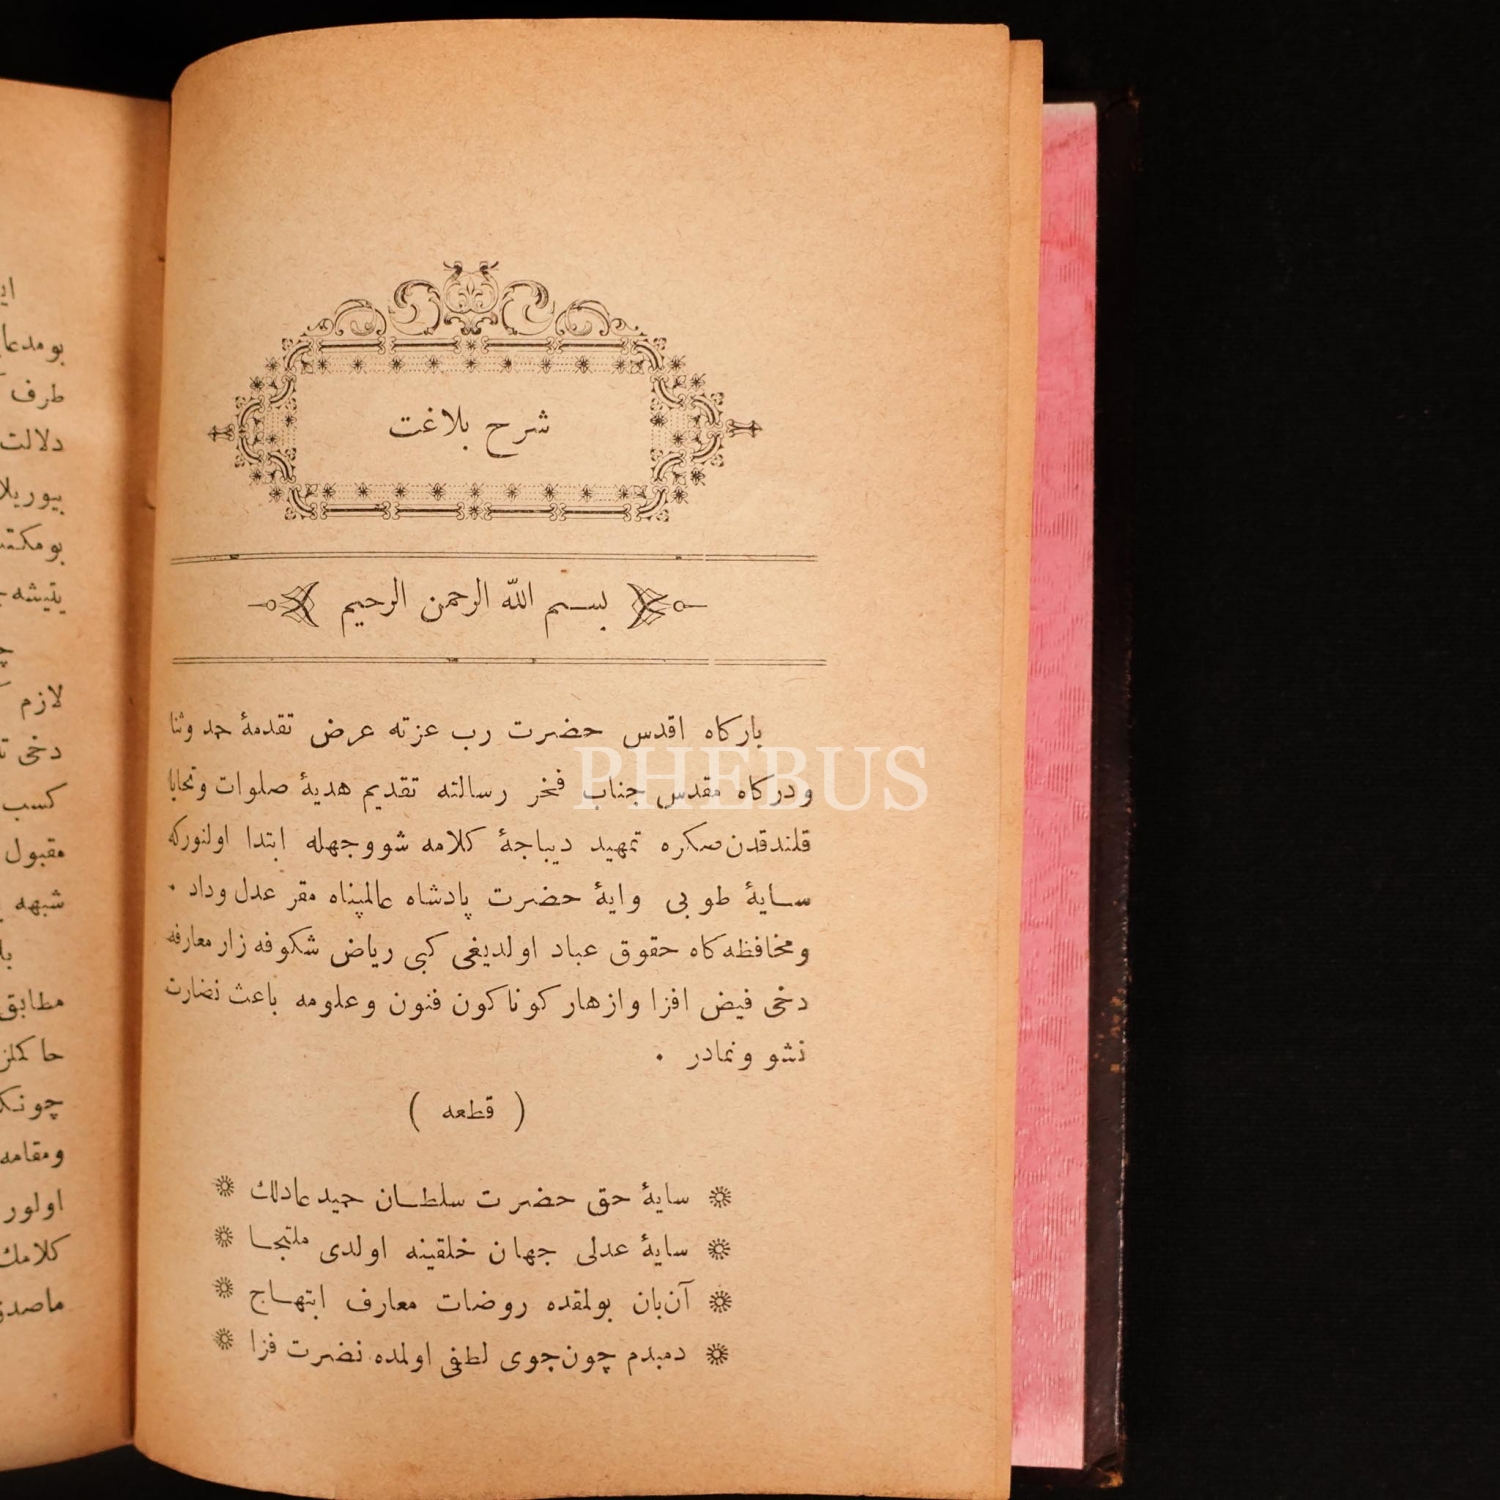 شرح بلاغت
بسم الله الرحمن الرحيم
باركاه اقدس حضرت رب عزته عرض تقدمهٔ حمد وثنا
ودركاه مقدس جناب فخر رسالته تقديم هديهٔ صلوات وتحايا
قلندقدن صكره تمهيد ديباجهٔ كلامه شووجهله ابتدا اولنوركه
سايهٔ طوبى وايهٔ حضرت پادشاه عالمپناه مقر عدل وداد ٠
ومحافظه كاه حقوق عباد اولديغى كبى رياض شكوفه زار معارفه
دخى فيض افزا وازهار كوناكون فنون وعلومه باعث نضارت
نشو ونمادر ٠
( قطعه )
سايهٔ حق حضرت سلطان حميد عادلك
سايهٔ عدلى جهان خلقينه اولدى ملتجا
آن بان بولمقده روضات معارف ابتهاج
دمبدم چون جوى لطفى اولمده نضرت فزا
PHEBUS
بومدعا
طرف
دلالت
بيوريلا
لازم
دخى
كسب
مقبول
شبهه
مطابق
ومقامه
اولور
كلامك